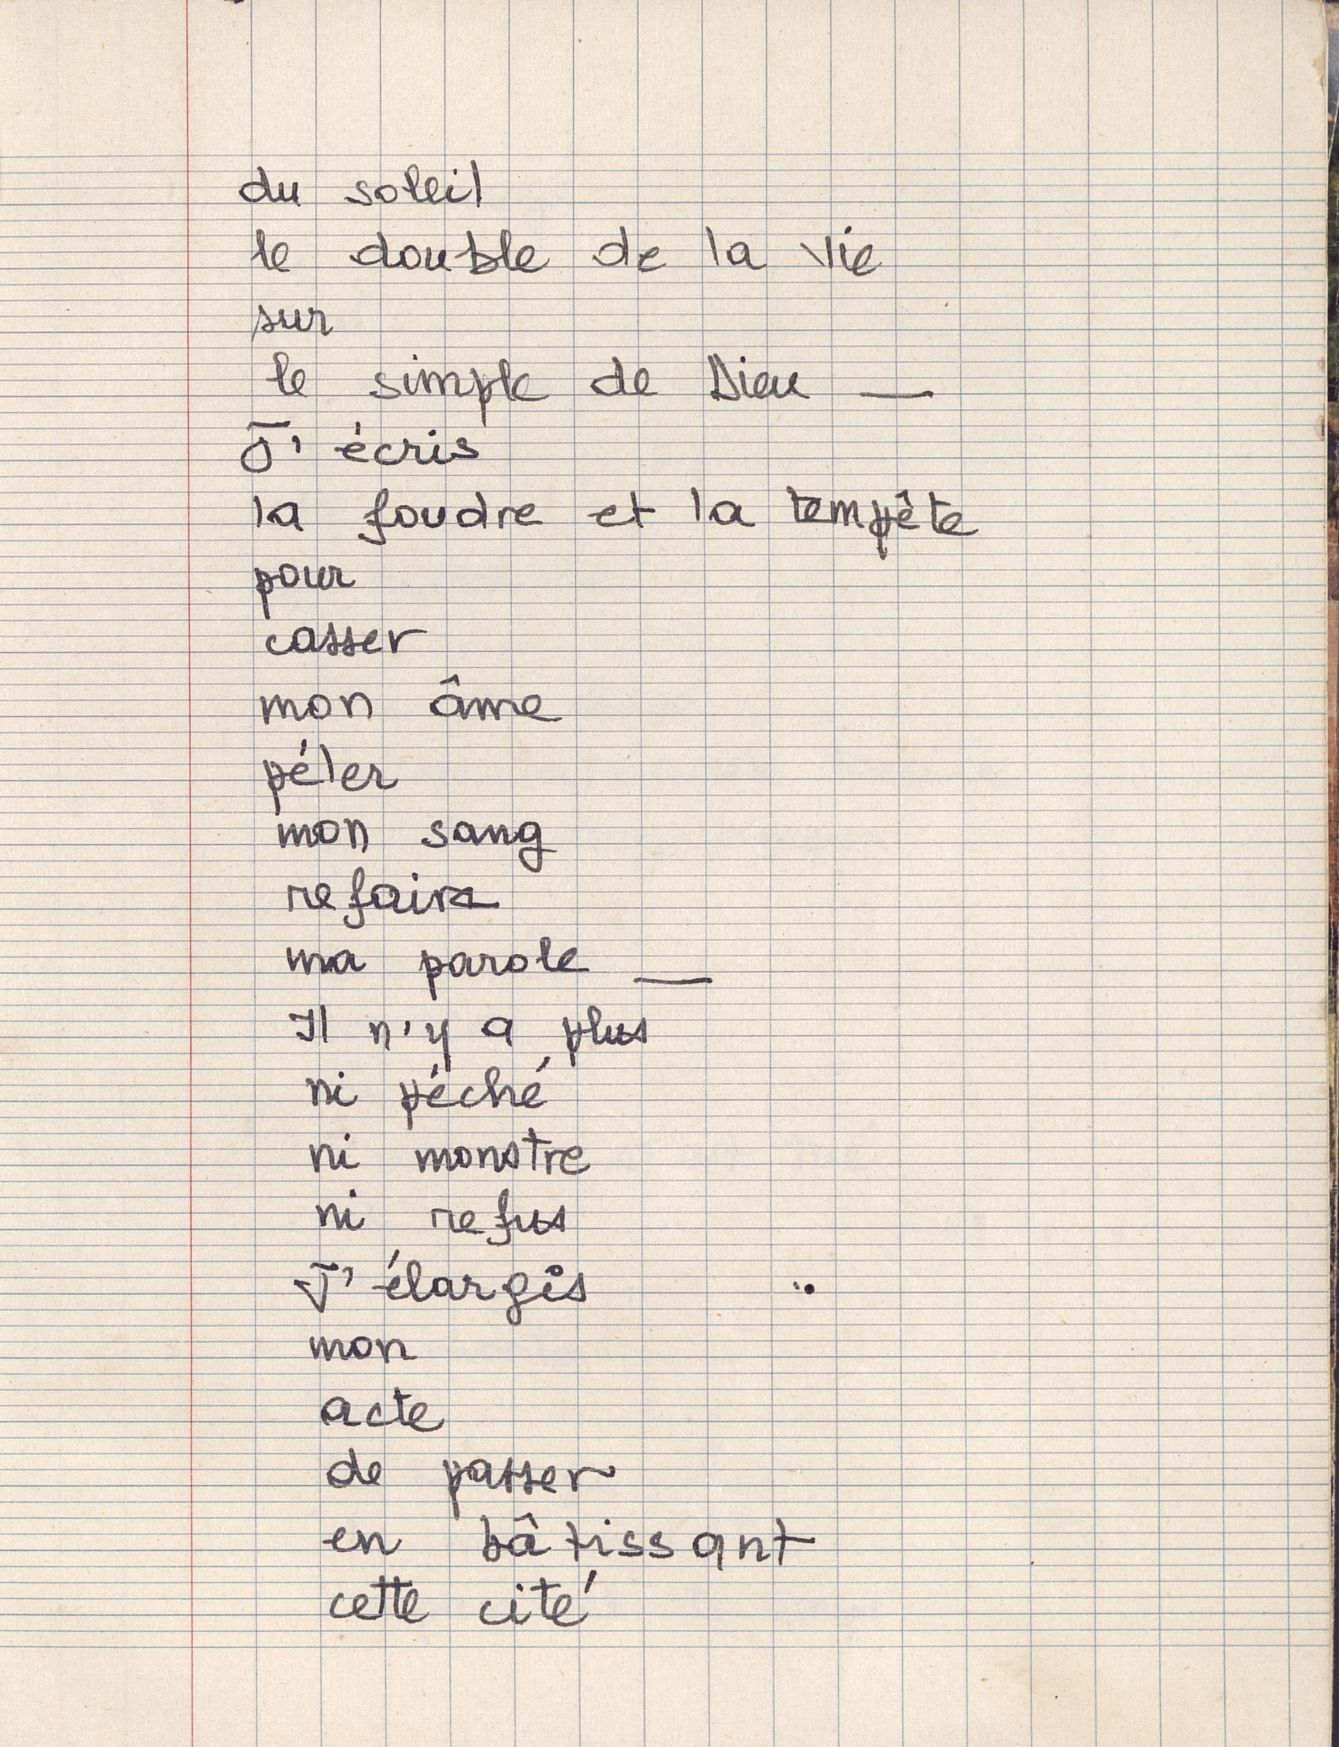 du soleil
le double de la vie
sur
le simple de Dieu —
J'écris
la foudre et la tempête
pour
casser
mon âme
péler
mon sang
refaire
ma parole —
Il n'y a plus
ni péché
ni monstre
ni refus
J'élargis
mon
acte
de passer
en bâtissant
cette cité